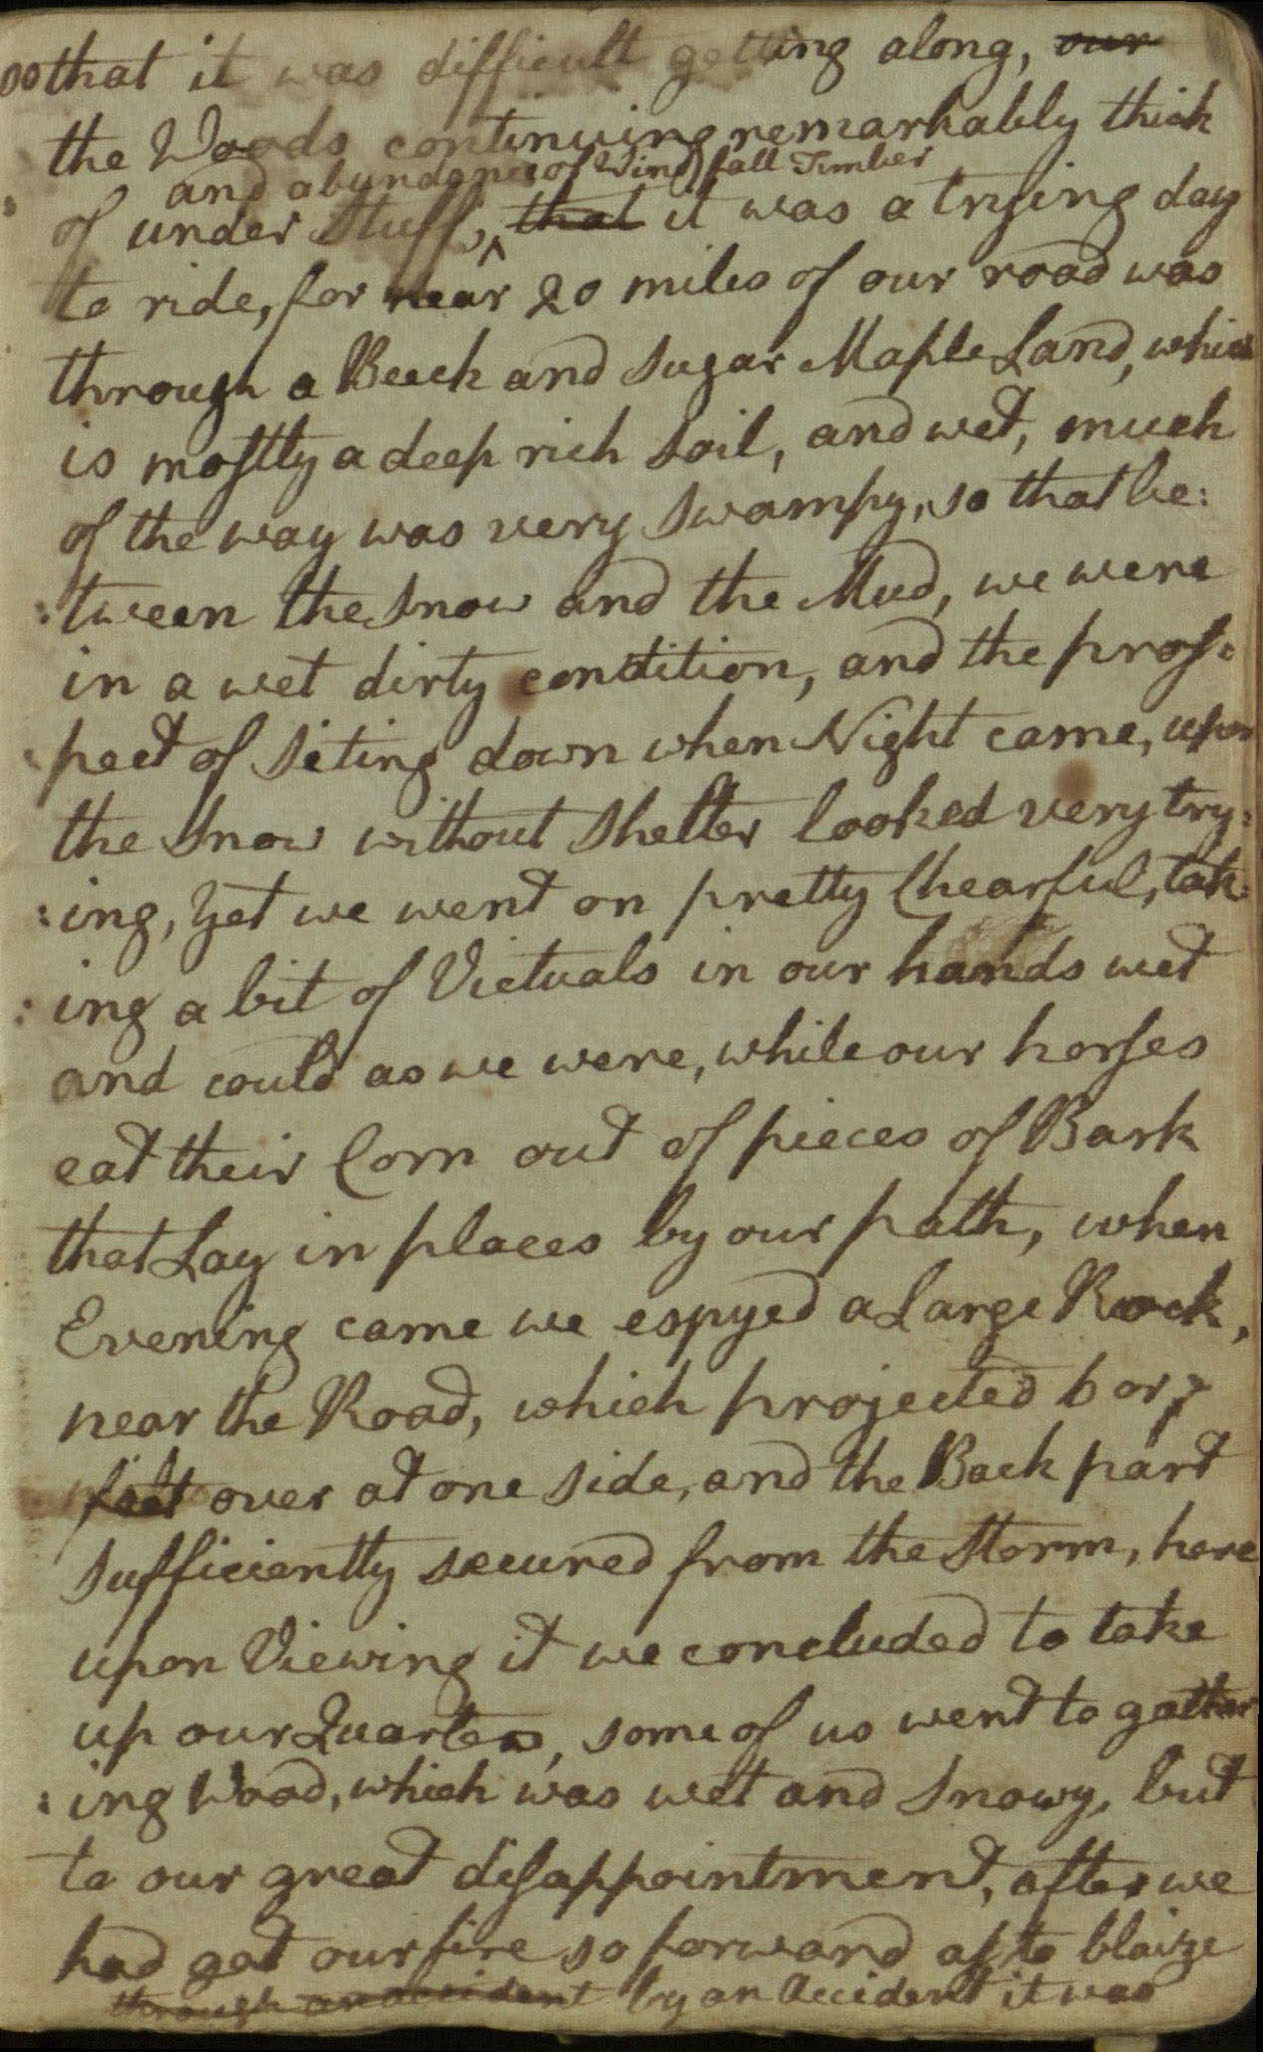 that it was difficult getting along, our
the Woods continuing remarkably thick
and abundance of Wind fall Timber
of under Stuff, ^ that it was a trying day
to ride, for near 20 miles of our road was
through a Beech and Sugar Maple Land, which
is mostly a deep rich Soil, and wet, much
of the way was very Swampy, so that be:
:tween the Snow and the Mud, we were
in a wet dirty condition, and the pros:
:pect of Siting down when Night came, upon
the Snow without Shelter looked very try:
:ing, Yet we went on pretty Chearful, tak:
:ing a bit of Victuals in our hands wet
and could as we were, while our horses
eat their Corn out of pieces of Bark
that Lay in places by our path, when
Evening came we espyed a Large Rock,
near the Road, which projected 6 or 7
feet over at one Side, and the Back part
Sufficiently secured from the Storm, here
upon Viewing it we concluded to take
up our Quarters, some of us went to gather
:ing Wood, which was wet and Snowy, but
to our great disappointment, after we
had got our fire so forward as to blaize
through an accident by an Accident it was